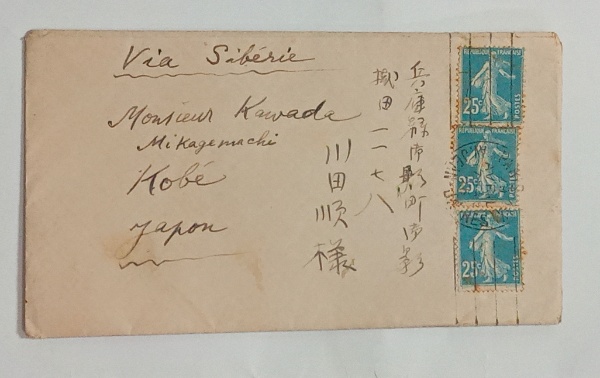 Via Sibérie
Monsieur Kawada
Mikagemachi
Kobé
Japon
兵庫縣
町御影
掛田一一七八
川田順様
REPUBLIQUE FRANÇAISE
25c
POSTES
REPUBLIQUE FRANÇAISE
25c
POSTES
REPUBLIQUE FRANÇAISE
25c
POSTES